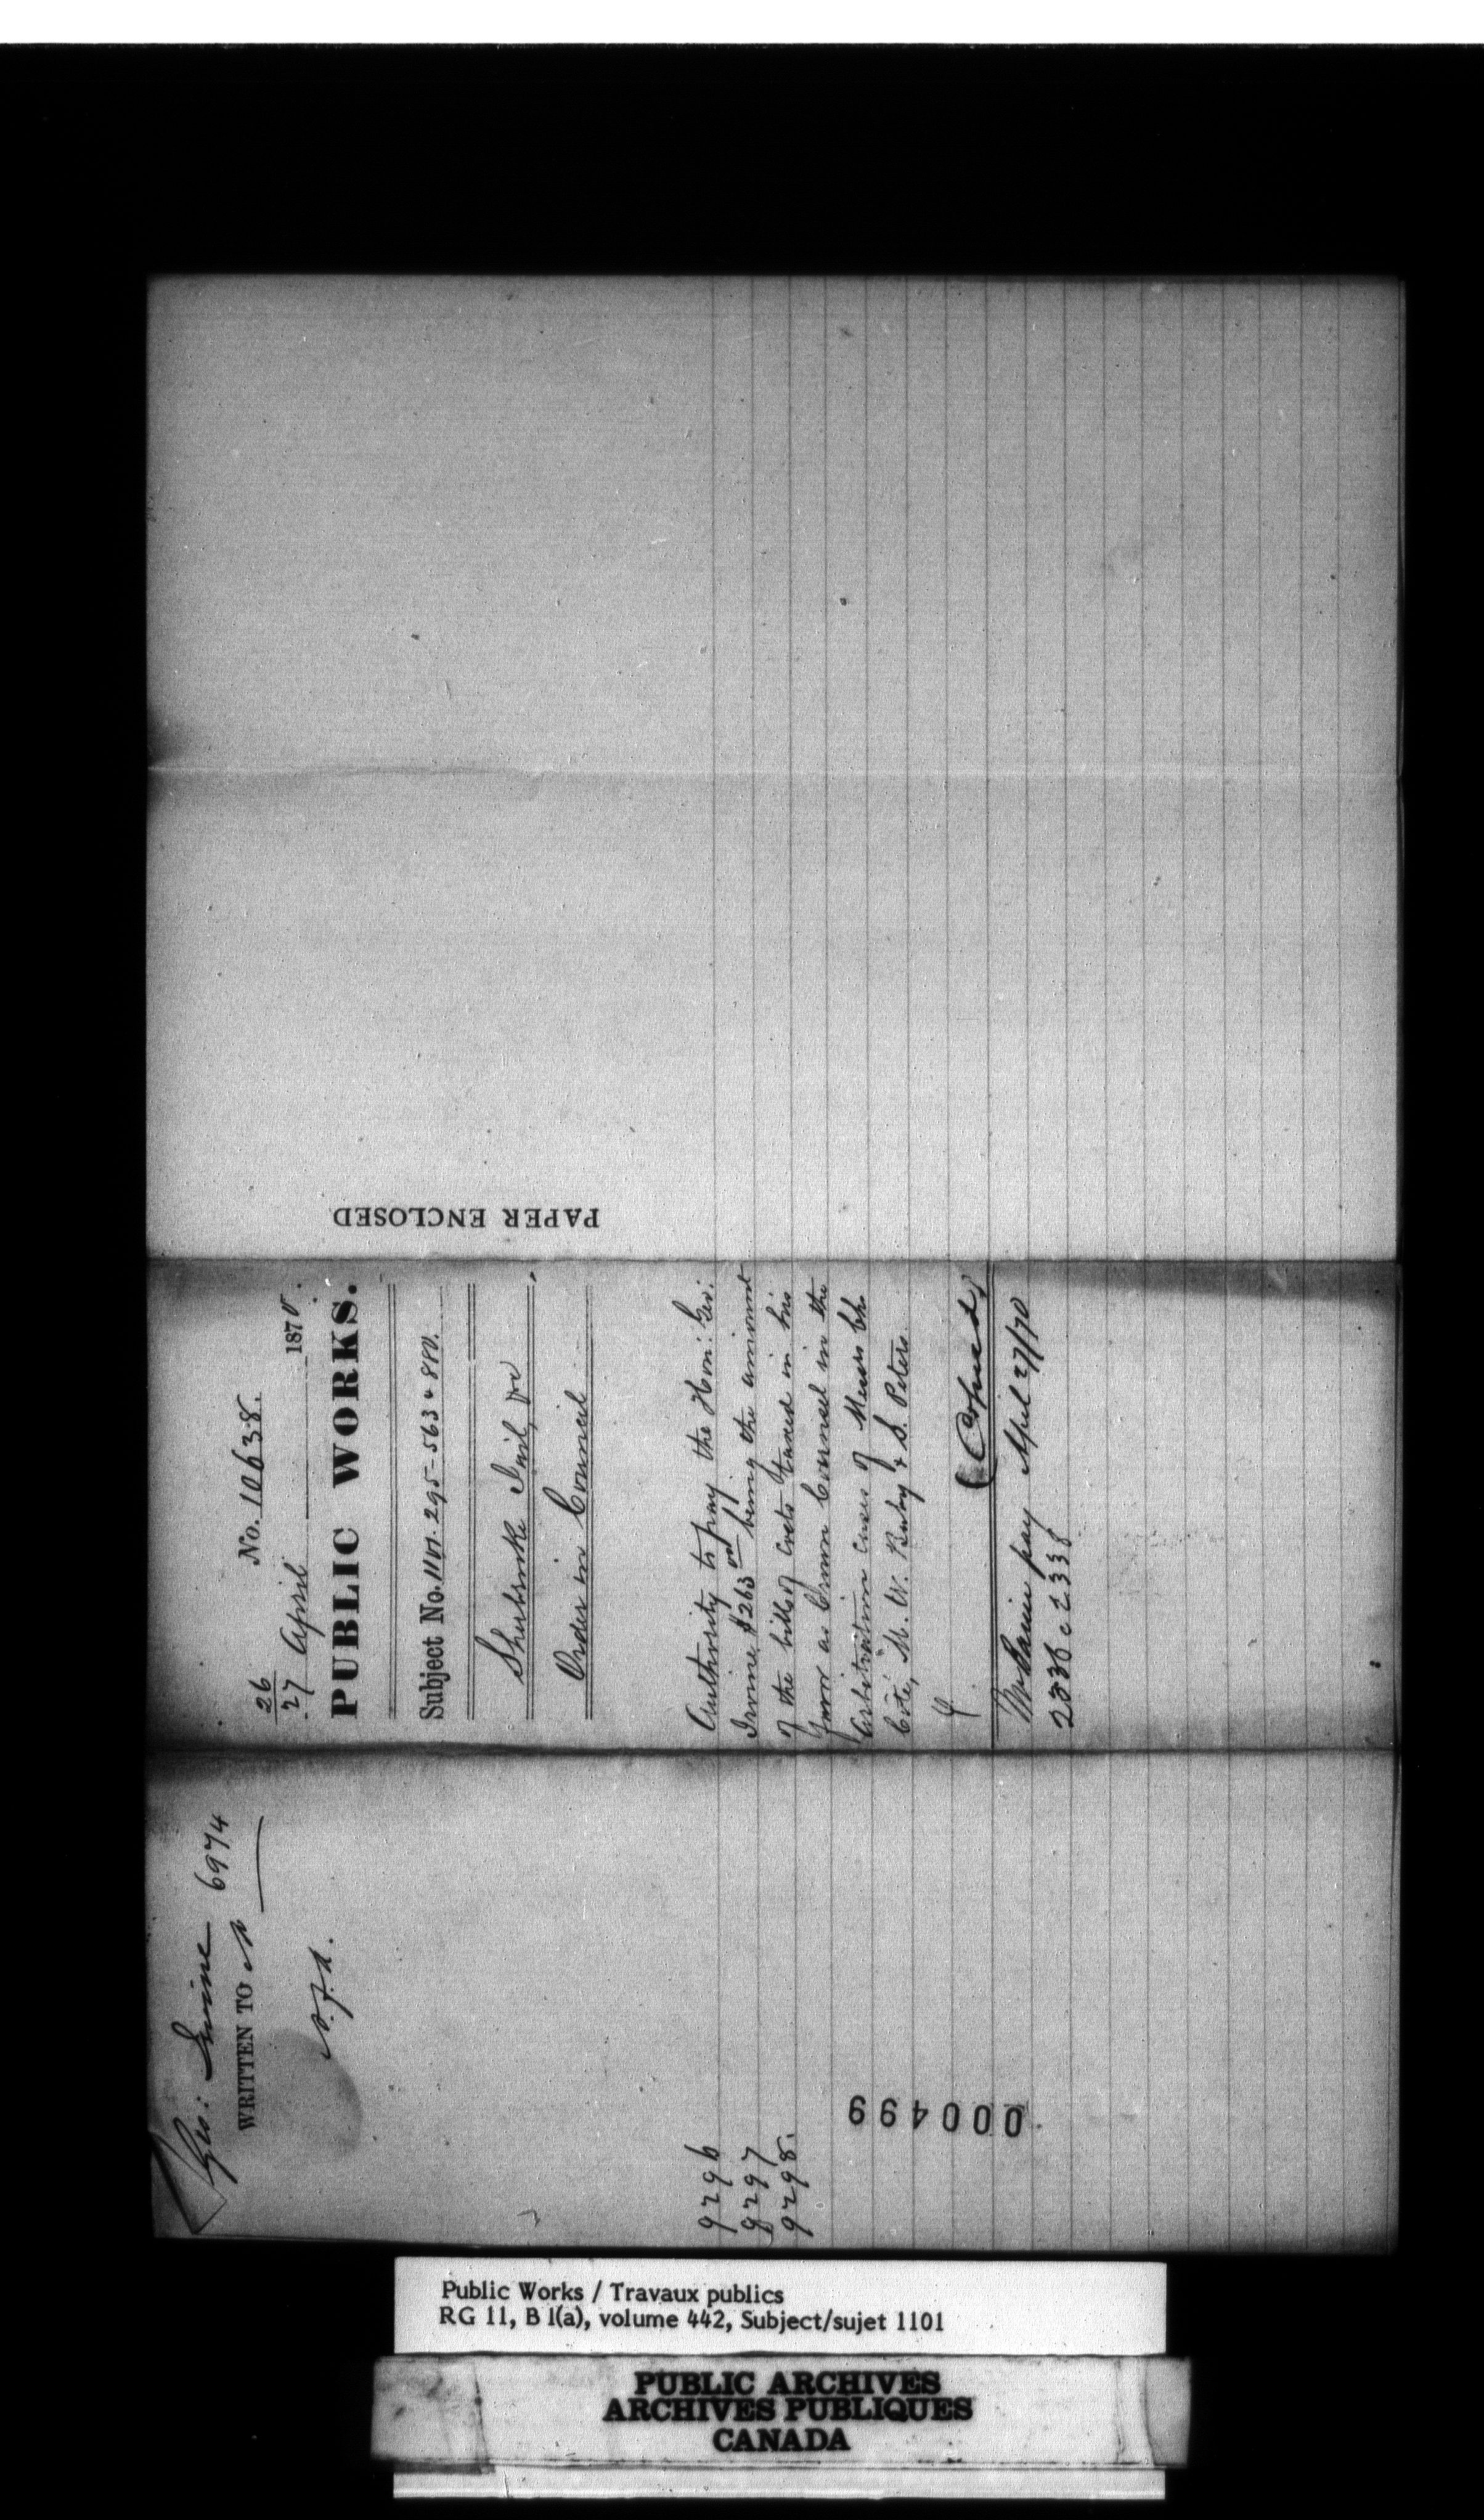 Geo: Irvine 6974
WRITTEN TO
9296
9297
9298.
000499
No. 10638.
26
27 April 1870.
PUBLIC WORKS.
Subject No. 1101. 295-563 & 880.
Sherbrooke
Order in Council
Authority to pay the Hon: Geo:
Irvine $263 being the amount
of the bills of costs taxed in his
favor as Crown Counsel in the
Arbitration cases of Messrs Chs
Coté, M. W. Baby & S. Peters.
(Copied)
pay April 27/70
PAPER ENCLOSED
Public Works / Travaux publics
RG 11, B 1(a), volume 442, Subject/sujet 1101
PUBLIC ARCHIVES
ARCHIVES PUBLIQUES
CANADA